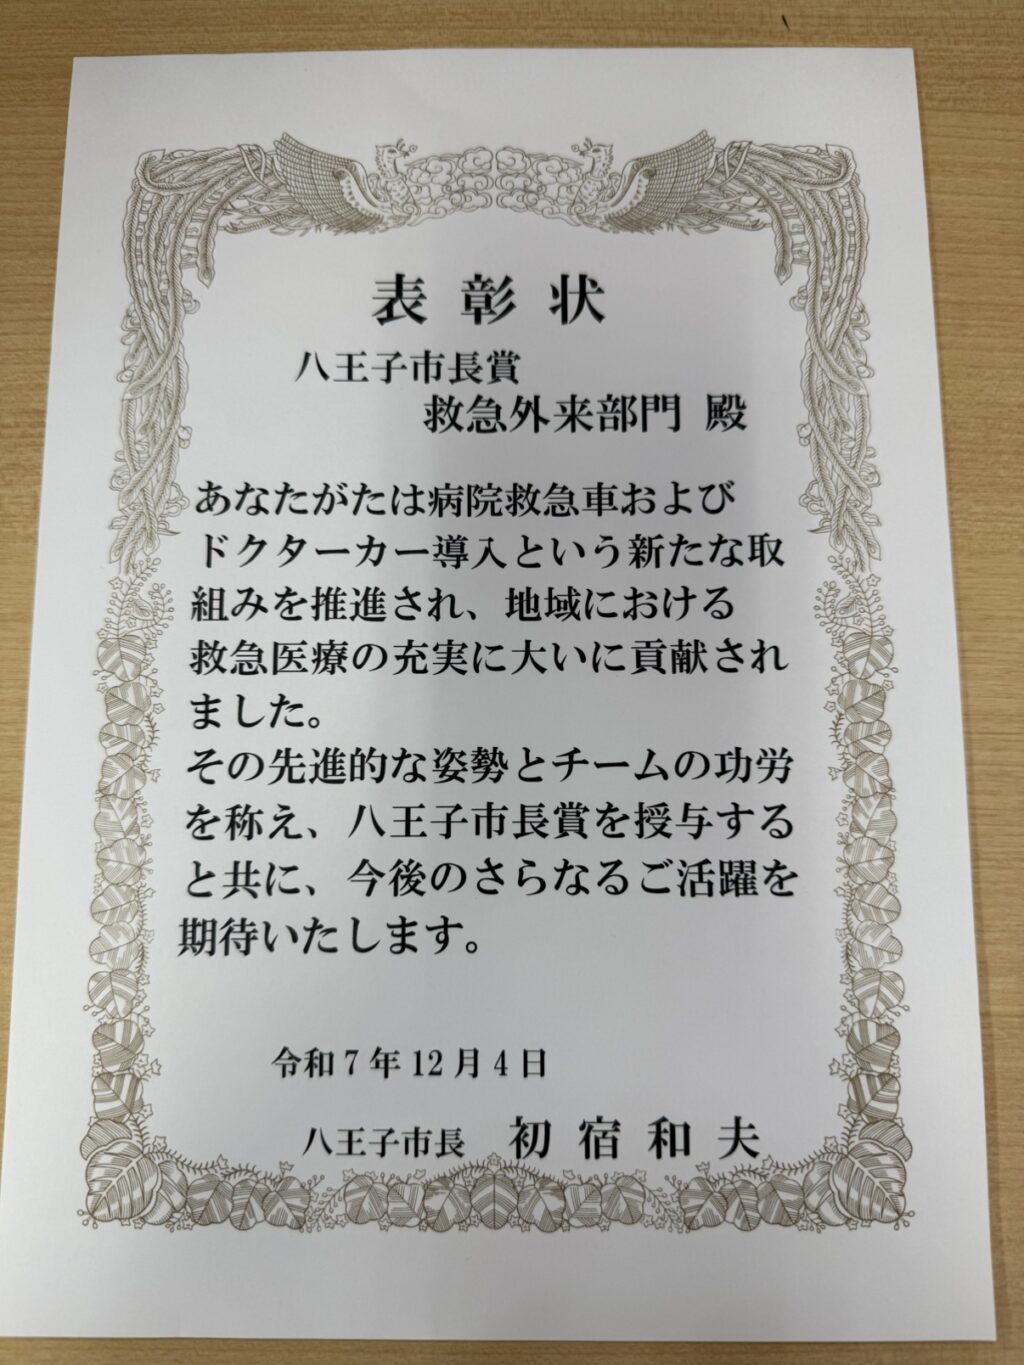 表彰状
八王子市長賞
救急外来部門 殿
あなたがたは病院救急車および
ドクターカー導入という新たな取
組みを推進され、地域における
救急医療の充実に大いに貢献され
ました。
その先進的な姿勢とチームの功労
を称え、八王子市長賞を授与する
と共に、今後のさらなるご活躍を
期待いたします。
令和7年12月4日
八王子市長 初宿和夫